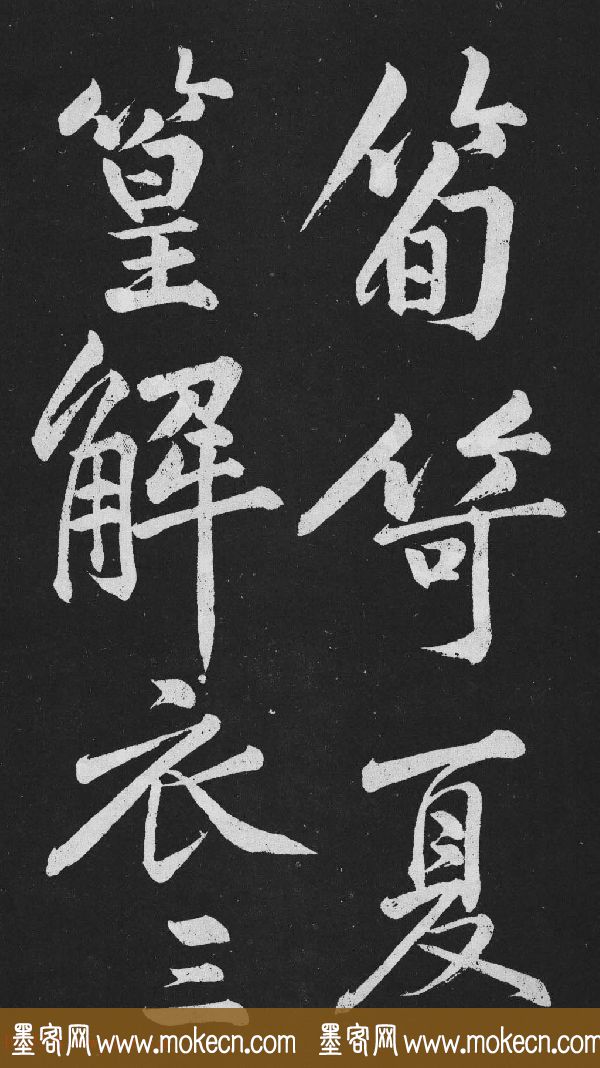 筍笴夏
篁解衣三
墨客网 www.mokecn.com 墨客网 www.mokecn.com